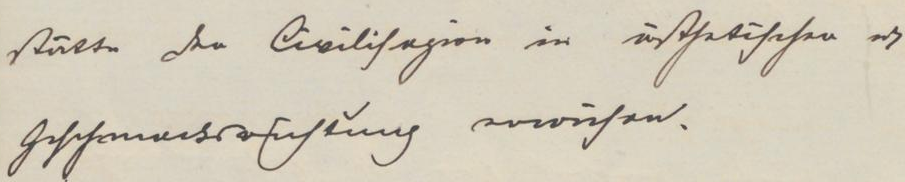 stätte der Civilisazion in ästhetischer u
Geschmacksrichtung erwiesen.